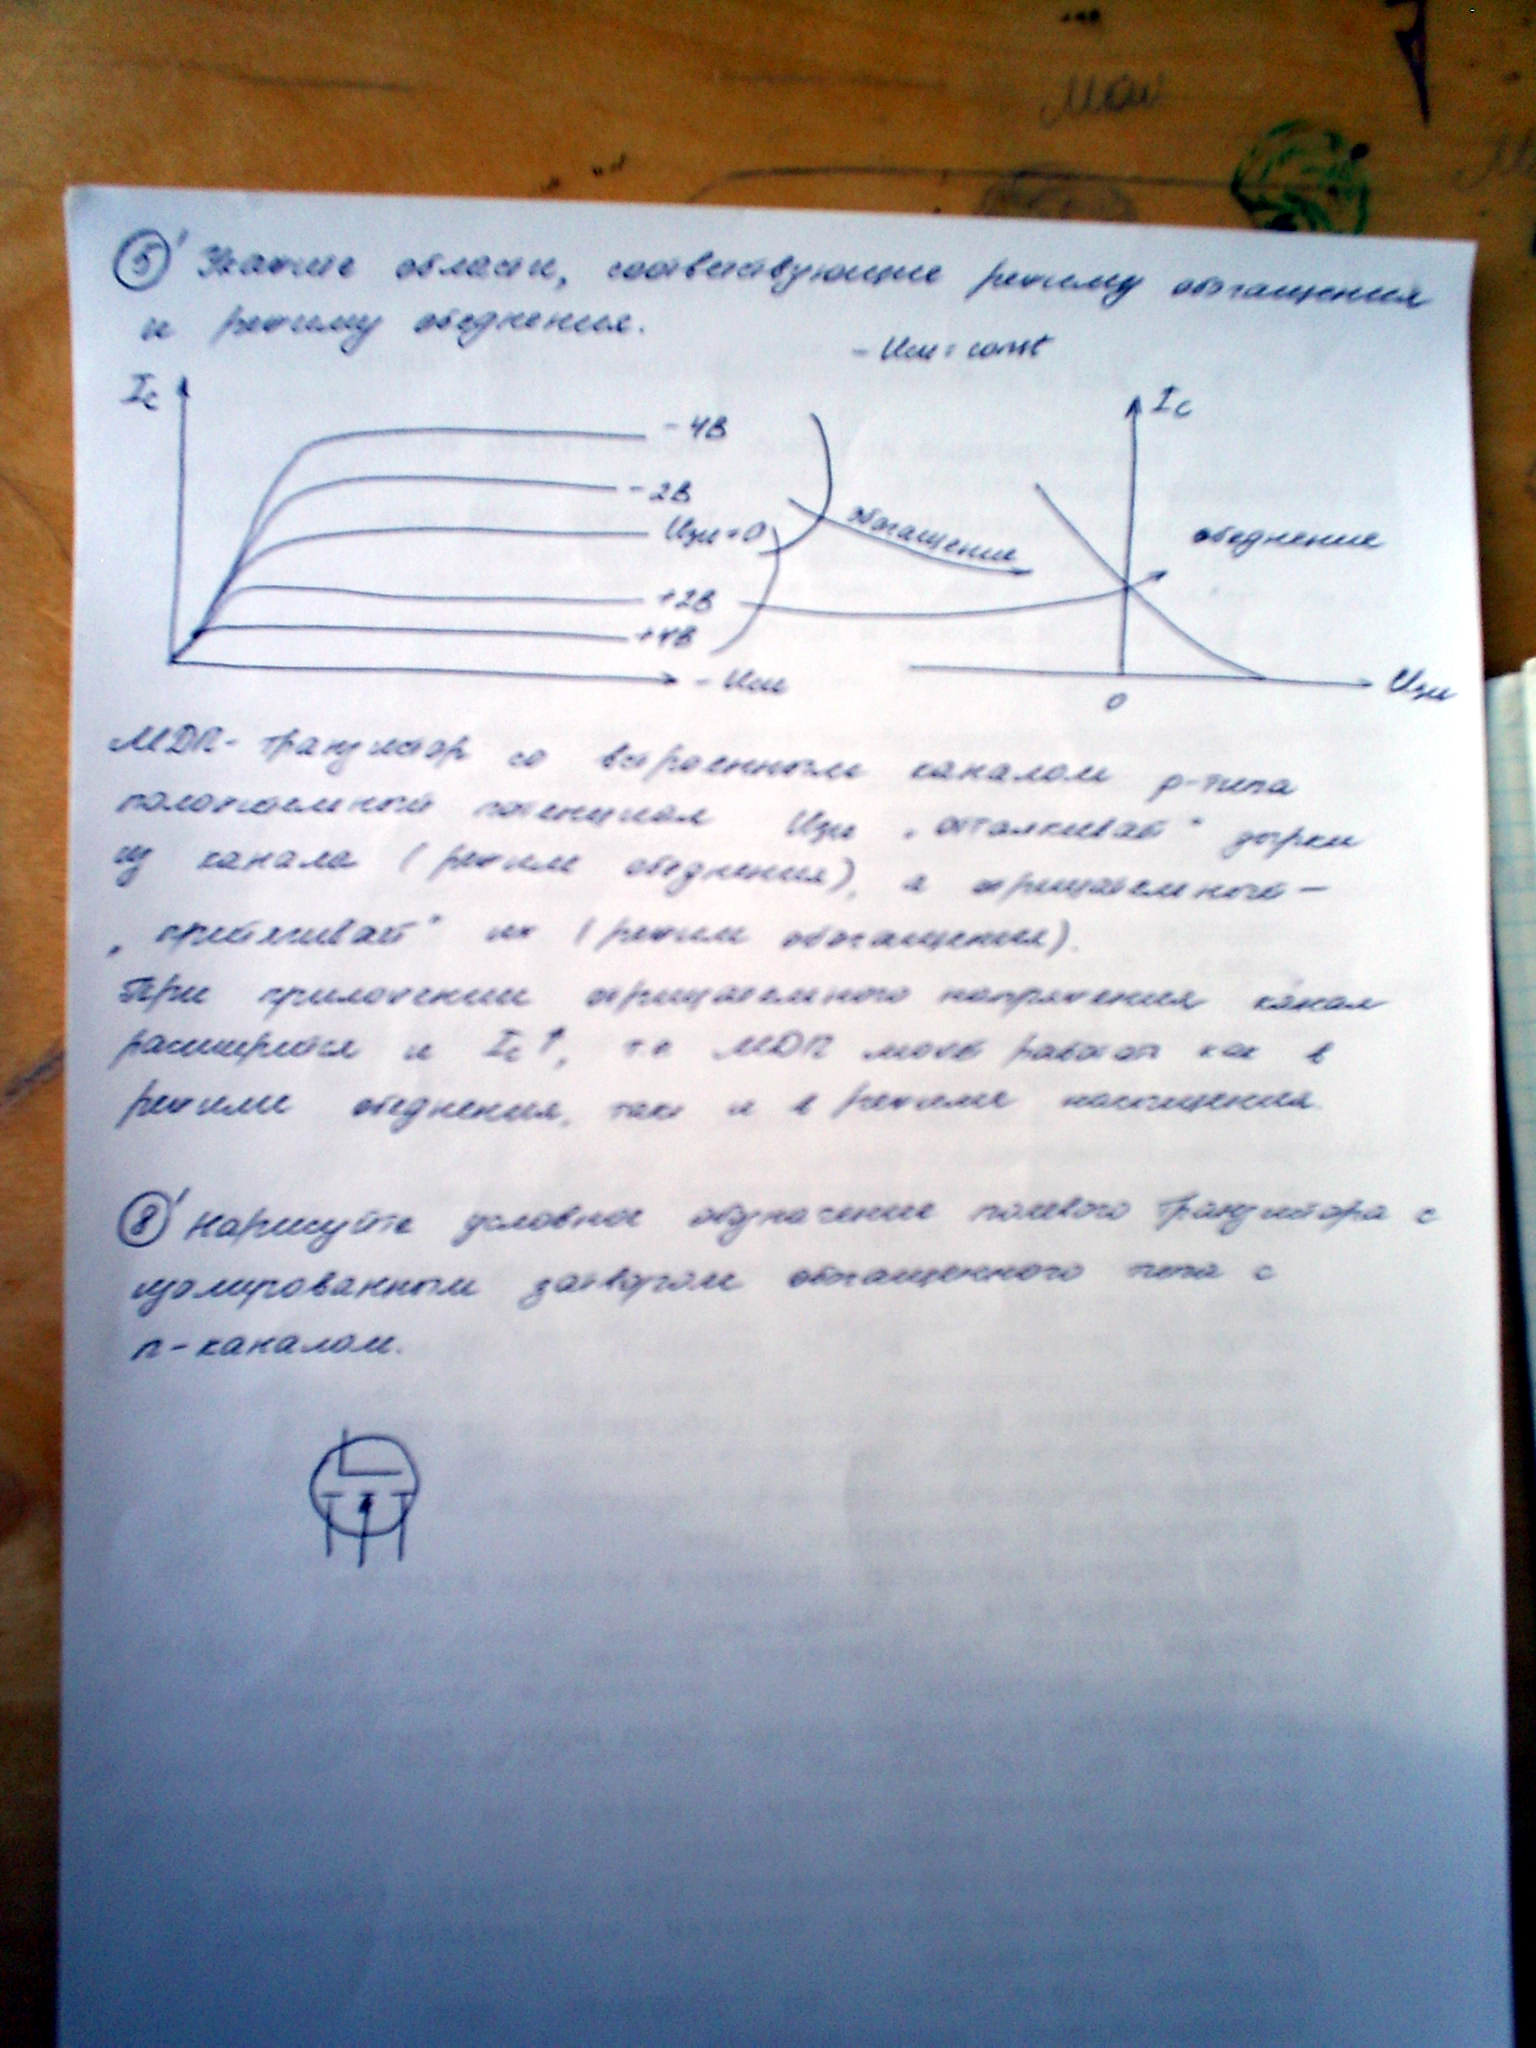 Мои
5' Укажите области, соответствующие режиму обогащения
и режиму обеднения.
- Uси = const
Iс
- 4В
- 2В
Uзи = 0
+2В
+4В
- Uси
обогащение
Iс
обеднение
0
Uзи
МДП-транзистор со встроенным каналом p-типа
положительный потенциал Uзи „отталкивает" дырки
из канала (режим обеднения), а отрицательного —
„притягивает" их (режим обогащения).
При приложении отрицательного напряжения канал
расширяется и Iс↑, т.е. МДП может работать как в
режиме обеднения, так и в режиме насыщения.
8' Нарисуйте условное обозначение полевого транзистора с
изолированным затвором обогащенного типа с
n-каналом.